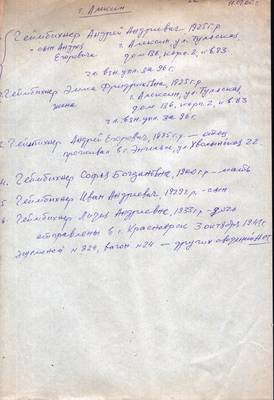 г. Алексин
Геймбихнер Андрей Андреевич 1925 г.р.
- сын Андрея Егоровича г. Алексин, ул. Тульская, дом 136, корп. 2, кв. 83
чл. взн. упл. за 96 г.
2. Геймбихнер Элла Фридриховна, 1925 г.р.
жена г. Алексин, ул. Тульская, дом 136, корп. 2, кв. 83
чл. взн. упл. за 96 г.
3. Геймбихнер Андрей Егорович, 1895 г.р. - отец
проживал в г. Энгельс, ул. 22
4. Геймбихнер Софья Богдановна, 1900 г.р. - мать
5 Геймбихнер Иван Андреевич 1929 г.р. - сын
6 Геймбихнер Лидия Андреевна, 1935 г.р. - дочь
отправлены в г. Красноярск 3 октября 1941 г.
эшелоном № 824, вагон № 24 - других сведений нет